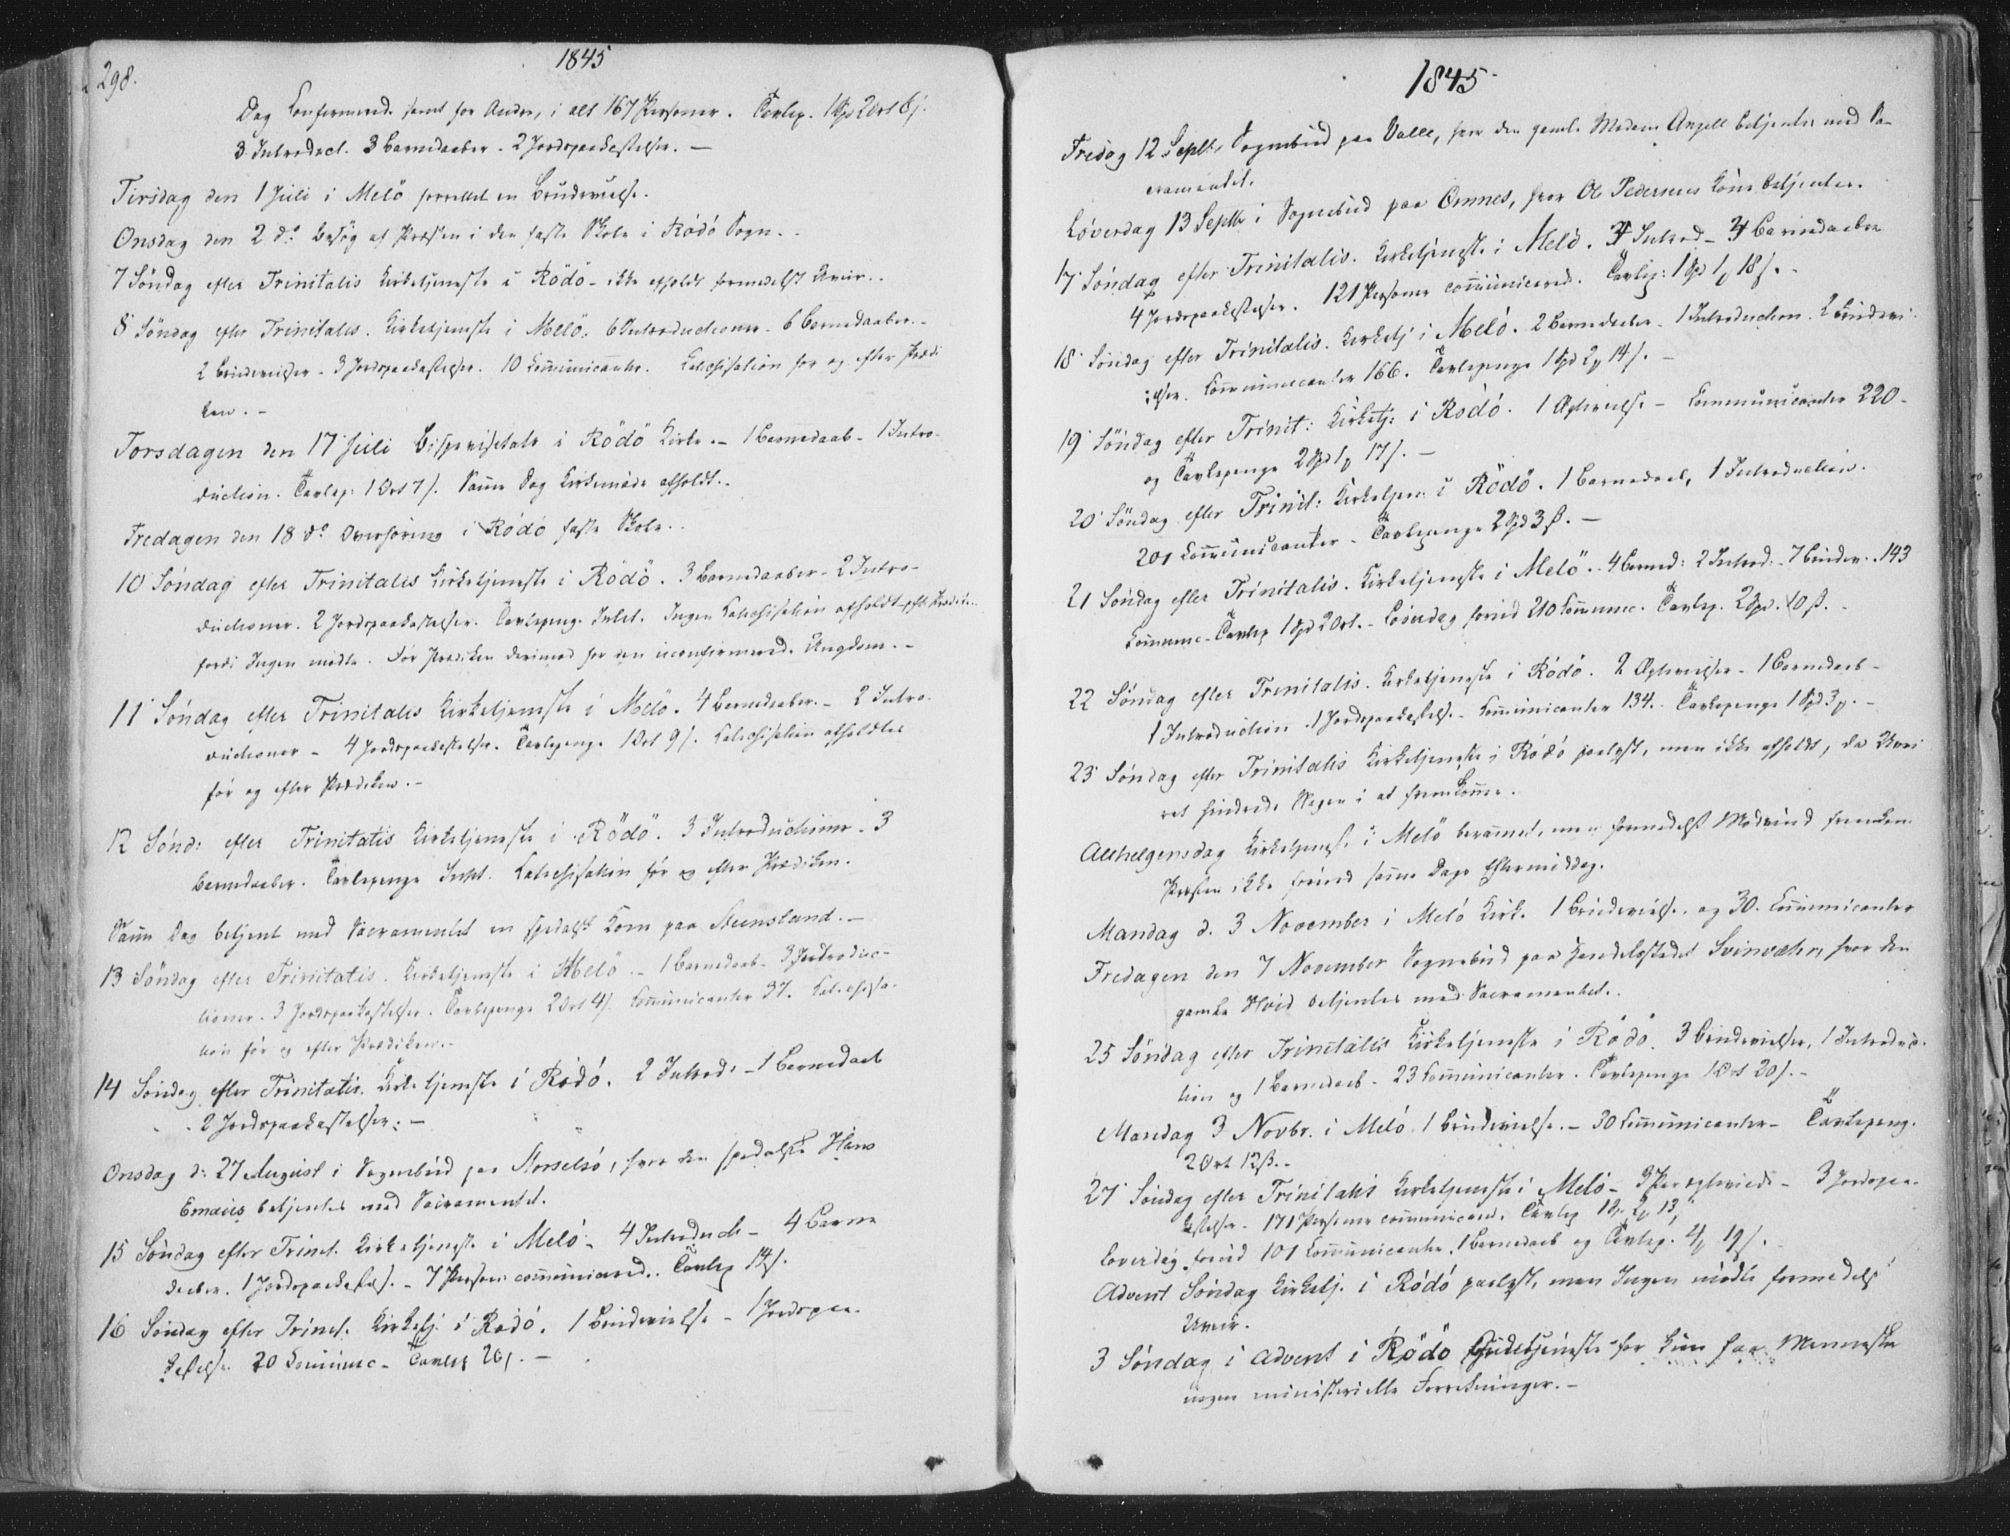 298.
1845
Dag Confirmered. samt for Andre, i alt 167 Personer. Tavlep. 1 Spd 2 Ort 6 s.
3 Introduct. 3 Barnedaaber. 2 Jordpaakastelser. —
Tirsdag den 1 Juli i Melö forrettet en Brudevielse.
Onsdag den 2 do Besög af Præsten i den faste Skole i Rödö Sogn. -
7 Söndag efter Trinitatis Kirketjeneste i Rödö - ikke afholdt formedelst Uveir. -
8 Söndag efter Trinitatis. Kirketjeneste i Melö. 6 Introductioner - 6 Barnedaaber. -
2 Brudevielser - 3 Jordpaakastelser. 10 Communicanter. Catechisation for og efter Prædi
ken. -
Torsdagen den 17 Juli Bispevisitats i Rödö Kirke. - 1 Barnedaab - 1 Intro-
duction. Tavlep: 1 Ort 7 s. Samme Dag Kirkemöde afholdt. -
Fredagen den 18 do Overhöring i Rödö faste Skole. -
10 Söndag efter Trinitatis Kirketjeneste i Rödö. 3 Barnedaaber - 2 Intro-
ductioner. 2 Jordpaakastelser. Tavlepeng. Intet. Ingen Catechisation afholdt efter Prædiken
fordi Ingen mödte. För Prædiken derimod for den uconfirmered. Ungdom. -
11 Söndag efter Trinitatis Kirketjeneste i Melö. 4 Barnedaaber. - 2 Intro-
ductioner - 4 Jordpaakastelser. Tavlepenge 1 Ort 9 s. Catechisation afholdtes
för og efter Prædiken. -
12 Sönd: efter Trinitatis Kirketjeneste i Rödö. 3 Introductioner - 3
Barnedaaber. Tavlepenge Intet. Catechisation för og efter Prædiken.
Samme Dag betjent med Sacramentet en spedalsk Kone paa Stensland. —
13 Söndag efter Trinitatis. Kirketjeneste i Melö. - 1 Barnedaab - 3 Introduc-
tioner. 3 Jordpaakastelser. Tavlepenge 2 Ort 4 s. Communicanter 37. Catechisa-
tion för og efter Prædiken. -
14 Söndag efter Trinitatis. Kirketjeneste i Rödö. 2 Introd: - 1 Barnedaab
2 Jordpaakastelser. —
Onsdag d: 27 August i Sognebud paa Storselsö, hvor den spedalske Hans
Emaus betjentes med Sacramentet.
15 Söndag efter Trinit. Kirketjeneste i Melö - 4 Introduct - 4 Barne
daaber. 1 Jordpaakastels. - 7 Personer communicered. Tavlep 14 s.
16 Söndag efter Trinit. Kirketj. i Rödö. 1 Brudevielse - 1 Jordpaa-
kastelse. 20 Commune - Tavlep 20 s. —
1845
Fredag 12 Septbr Sognebud paa Valle, hvor den gamle Madam Angell betjentes med Sa-
cramentet.
Löverdag 13 Septbr i Sognebud paa Omnes, hvor Ole Pedersens Kone betjentes.
17 Söndag efter Trinitatis. Kirketjeneste i Melö. 4 Introd - 4 Barnedaaber
4 Jordpaakastelser. 121 Personer communicered. Tavlep: 1 Spd 1 18 s. -
18 Söndag efter Trinitatis. Kirketj i Melö. 2 Barnedaaber - 1 Introduction. 2 Brudevi-
elser. Communicanter 166. Tavlepenge 1 Spd 2 14 s. —
19 Söndag efter Trinit: Kirketj: i Rödö. 1 Ægtevielse - Communicanter 220 -
og Tavlepenge 2 Spd 1 17 s. —
20 Söndag efter Trinit: Kirketjen: i Rödö. 1 Barnedaab, 1 Introduction.
201 Communicanter - Tavlepenge 2 Spd 3 ß. —
21 Söndag efter Trinitatis. Kirketjeneste i Melö. - 4 Barned: 2 Introd: - 7 Brudev. - 143
Commune - Tavlep 1 Spd 2 Ort. - Löverdag forud 210 Commune. Tavlep. 2 Spd. 10 ß. -
22 Söndag efter Trinitatis. Kirketjeneste i Rödö. 2 Ægtevielser - 1 Barnedaab -
1 Introduction. 1 Jordpaakastels. - Communicanter 134. Tavlepenge 1 Spd 3
23 Söndag efter Trinitatis Kirketjeneste i Rödö paalyst, men ikke afholdt, da Uvei
ret hindrede Nogen i at fremkomme.
Allehelgensdag Kirketjeneste i Melö berammet, men formedelst Modvind fremkom
Præsten ikke förend samme Dags Eftermiddag.
Mandag d. 3 November i Melö Kirk. 1 Brudevielse. og 30 Communicanter
Fredagen den 7 November Sognebud paa Handelsstedet Svinvær, hvor den
gamle Hvid betjentes med Sacramentet.
25 Söndag efter Trinitatis Kirketjeneste i Rödö. 3 Brudevielser, 1 Introduc-
tion og 1 Barnedaab - 23 Communicanter. Tavlepenge 1 Ort 20 s. -
Mandag 3 Novbr. i Melö 1 Brudevielse. - 30 Communicanter - Tavlepeng.
2 Ort 12 ß. -
27 Söndag efter Trinitatis Kirketjeneste i Melö - 3 Par ægteviede - 3 Jordpaa-
kastelser - 171 Personer communicered. Tavlep 1 Sp. 2 13 s
Löverdag forud 101 Communicanter, 1 Barnedaab og Tavlep. 4 19 s. -
Advent Söndag Kirketj. i Rödö paalyst, men Ingen mödte formedelst
Uveir.
3 Söndag i Advent i Rödö Gudstjeneste for kun faa Mennesker
ingen ministerielle Forretninger. -